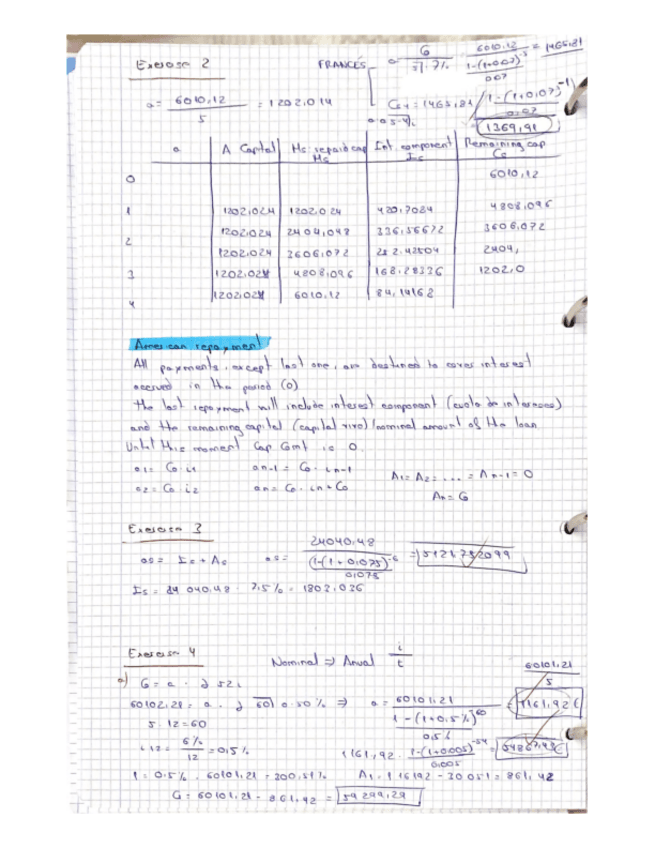 Exercise 2
FRANCÉS
a = C0 / a1 7% 6010,12 / (1-(1+0.07)^-5 / 0.07) = 1465.81
a = 6010,12 / 5 = 1202,024
Cs+1 = 1465,81 1-(1+0,07)^(-1) / 0.07
1369,91
a A Capital Ms: repaid cap Ms Int. component Is Remaining cap Cs
0 6010,12
1 1202,024 1202,024 420,7084 4808,096
2 1202,024 2404,048 336,56672 3606,072
1202,024 3606,072 252.42504 2404,
3 1202,024 4808,096 168,28336 1202,0
4 1202,024 6010,12 84,14168
American repayment
All payments, except last one, are destined to cover interest
accrued in the period (0)
the last repayment will include interest component (cuota de intereses)
and the remaining capital (capital vivo) / nominal amount of the loan
Until this moment Cap Amt is 0.
a1 = C0 · i1 an-1 = C0 · in-1 A1 = A2 = .... = An-1 = 0
a2 = C0 · i2 an = C0 · in + C0 An = C0
Exercise 3
as = Is + As as = 24040,48 / (1-(1+0,075)^-6 / 0,075) = 5121,782099
Is = 24 040,48 · 7,5% = 1803,036
Exercise 4
Nominal => Anual i / t
a) C0 = a ·
60101,21 / 5
60102,21 = a · 60 0.50% => a = 60101,21 / (1-(1+0,5%)^-60 / 0,5%) = 1161,92 €
5 · 12 = 60
i12 = 6% / 12 = 0,5%
1161,92 · 1-(1+0.005)^-54 / 0.005 = 54867,48 €
I = 0,5% · 60101,21 = 300,51% A1 = 1161,92 - 300,51 = 861,42
C1 = 60101,21 - 861,42 = 59 299,29